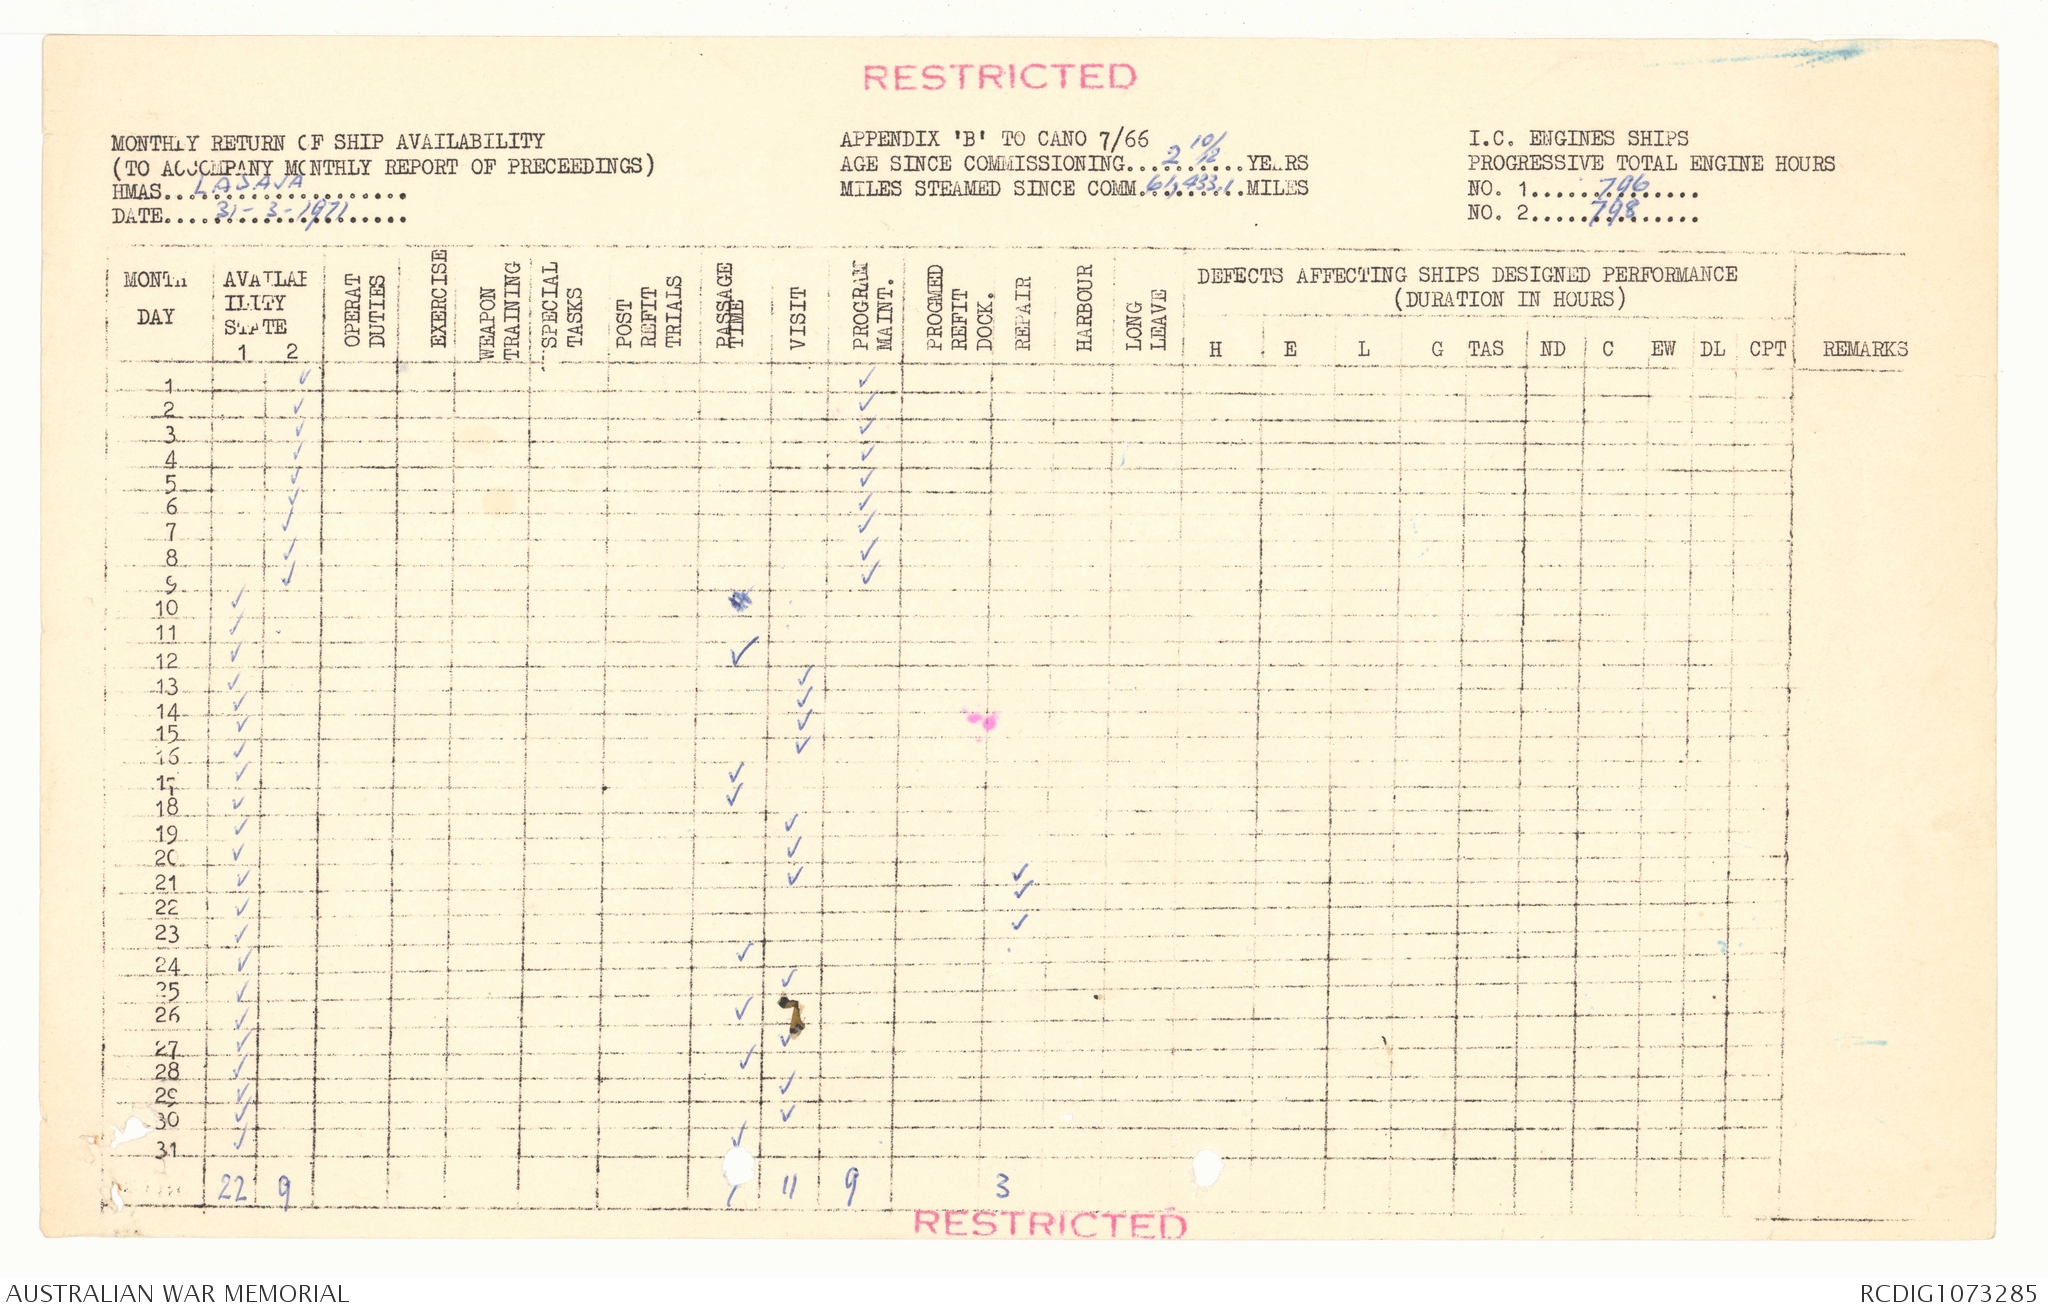 RESTRICTED
MONTHLY RETURN OF SHIP AVAILABILITY
(TO ACCOMPANY MONTHLY REPORT OF PRECEEDINGS)
HMAS..LADAVA....................
DATE....31-3-1971................
APPENDIX 'B' TO CANO 7/66
AGE SINCE COMMISSIONING...2 10/12...YEARS
MILES STEAMED SINCE COMM.61,433.1.MILES
I.C. ENGINES SHIPS
PROGRESSIVE TOTAL ENGINE HOURS
NO. 1........796......
NO. 2.......798.......
MONTH
DAY
AVAILAB
ILITY
STATE
1 2
OPERAT
DUTIES
EXERCISE
WEAPON
TRAINING
SPECIAL
TASKS
POST
REFIT
TRIALS
PASSAGE
TIME
VISIT
PROGRAM
MAINT.
PROGMED
REFIT
DOCK.
REPAIR
HARBOUR
LONG
LEAVE
DEFECTS AFFECTING SHIPS DESIGNED PERFORMANCE
(DURATION IN HOURS)
H E L G TAS ND C EW DL CPT REMARKS
1 ✓ ✓
2 ✓ ✓
3 ✓ ✓
4 ✓ ✓
5 ✓ ✓
6 ✓ ✓
7 ✓ ✓
8 ✓ ✓
9 ✓ ✓
10 ✓
11 ✓
12 ✓ ✓
13 ✓ ✓
14 ✓ ✓
15 ✓ ✓
16 ✓ ✓
17 ✓ ✓
18 ✓ ✓
19 ✓ ✓
20 ✓ ✓
21 ✓ ✓ ✓
22 ✓ ✓
23 ✓ ✓
24 ✓ ✓
25 ✓ ✓
26 ✓ ✓
27 ✓ ✓
28 ✓ ✓
29 ✓ ✓
30 ✓ ✓
31 ✓ ✓
22 9 11 9 3
RESTRICTED
AUSTRALIAN WAR MEMORIAL
RCDIG1073285